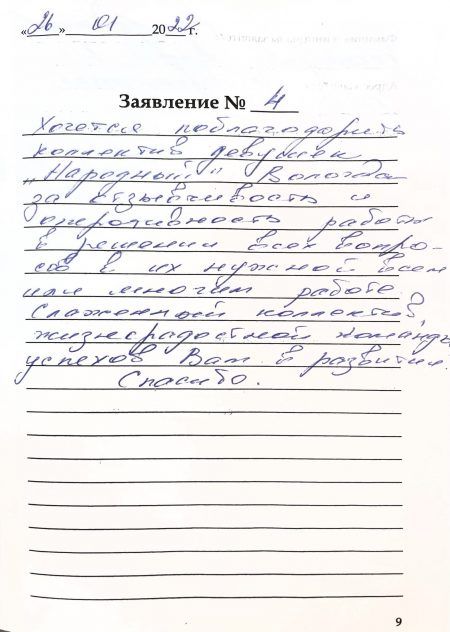 «26» 01 2022г.
Заявление № 4
Хочется поблагодарить
коллектив девушек
„Народный" Вологда
за отзывчивость и
оперативность работы
в решении всех вопро-
сов в их нужной всем
или многим работе.
Слаженный коллектив,
жизнерадостной команды
успехов Вам в развитии.
Спасибо.
9